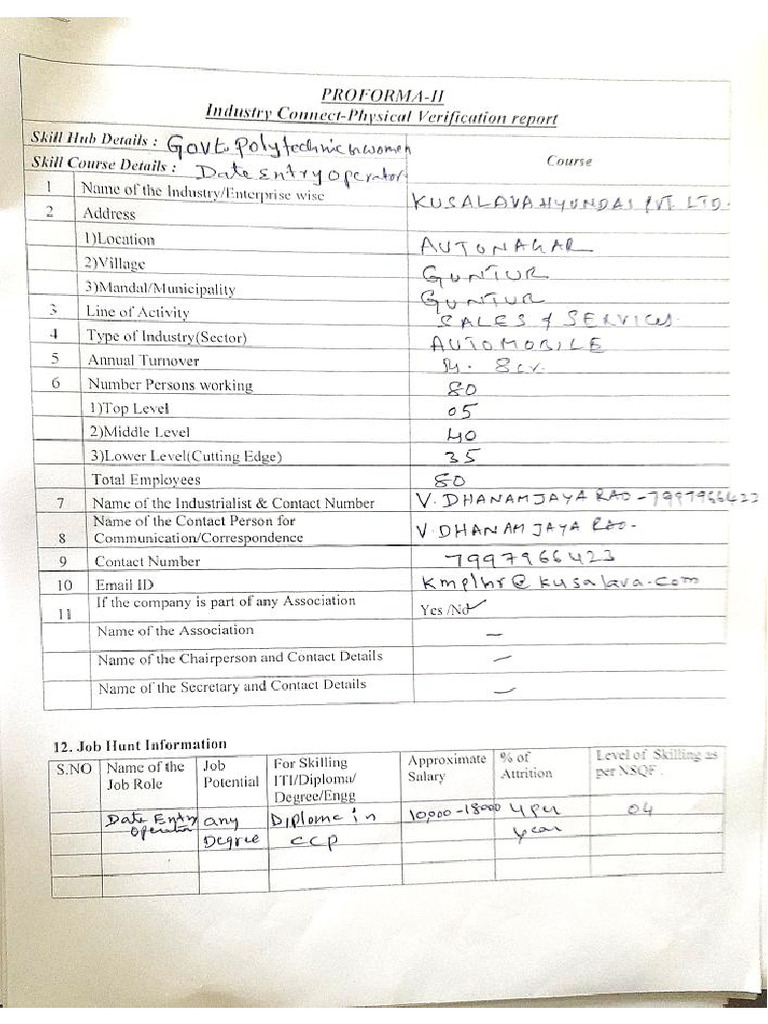 PROFORMA-II
Industry Connect-Physical Verification report
Skill Hub Details : Govt. Polytechnic women
Skill Course Details : Date Entry Operator
Course
1 Name of the Industry/Enterprise wise KUSALAVA HYUNDAI PVT. LTD.
2 Address
1)Location AUTONAGAR
2)Village GUNTUR
3)Mandal/Municipality GUNTUR
3 Line of Activity SALES & SERVICES.
4 Type of Industry(Sector) AUTOMOBILE
5 Annual Turnover Rs. 8 cr.
6 Number Persons working 80
1)Top Level 05
2)Middle Level 40
3)Lower Level(Cutting Edge) 35
Total Employees 80
7 Name of the Industrialist & Contact Number V. DHANAMJAYA RAO - 7997966423
8 Name of the Contact Person for
Communication/Correspondence V. DHANAMJAYA RAO.
9 Contact Number 7997966423
10 Email ID kmplhr@kusalava.com
11 If the company is part of any Association Yes /No ✓
Name of the Association –
Name of the Chairperson and Contact Details –
Name of the Secretary and Contact Details –
12. Job Hunt Information
S.NO Name of the Job Role Job Potential For Skilling ITI/Diploma/ Degree/Engg Approximate Salary % of Attrition Level of Skilling as per NSQF.
Date Entry Operator any Degree Diplome in CCP 10000-18000 4 per year 04